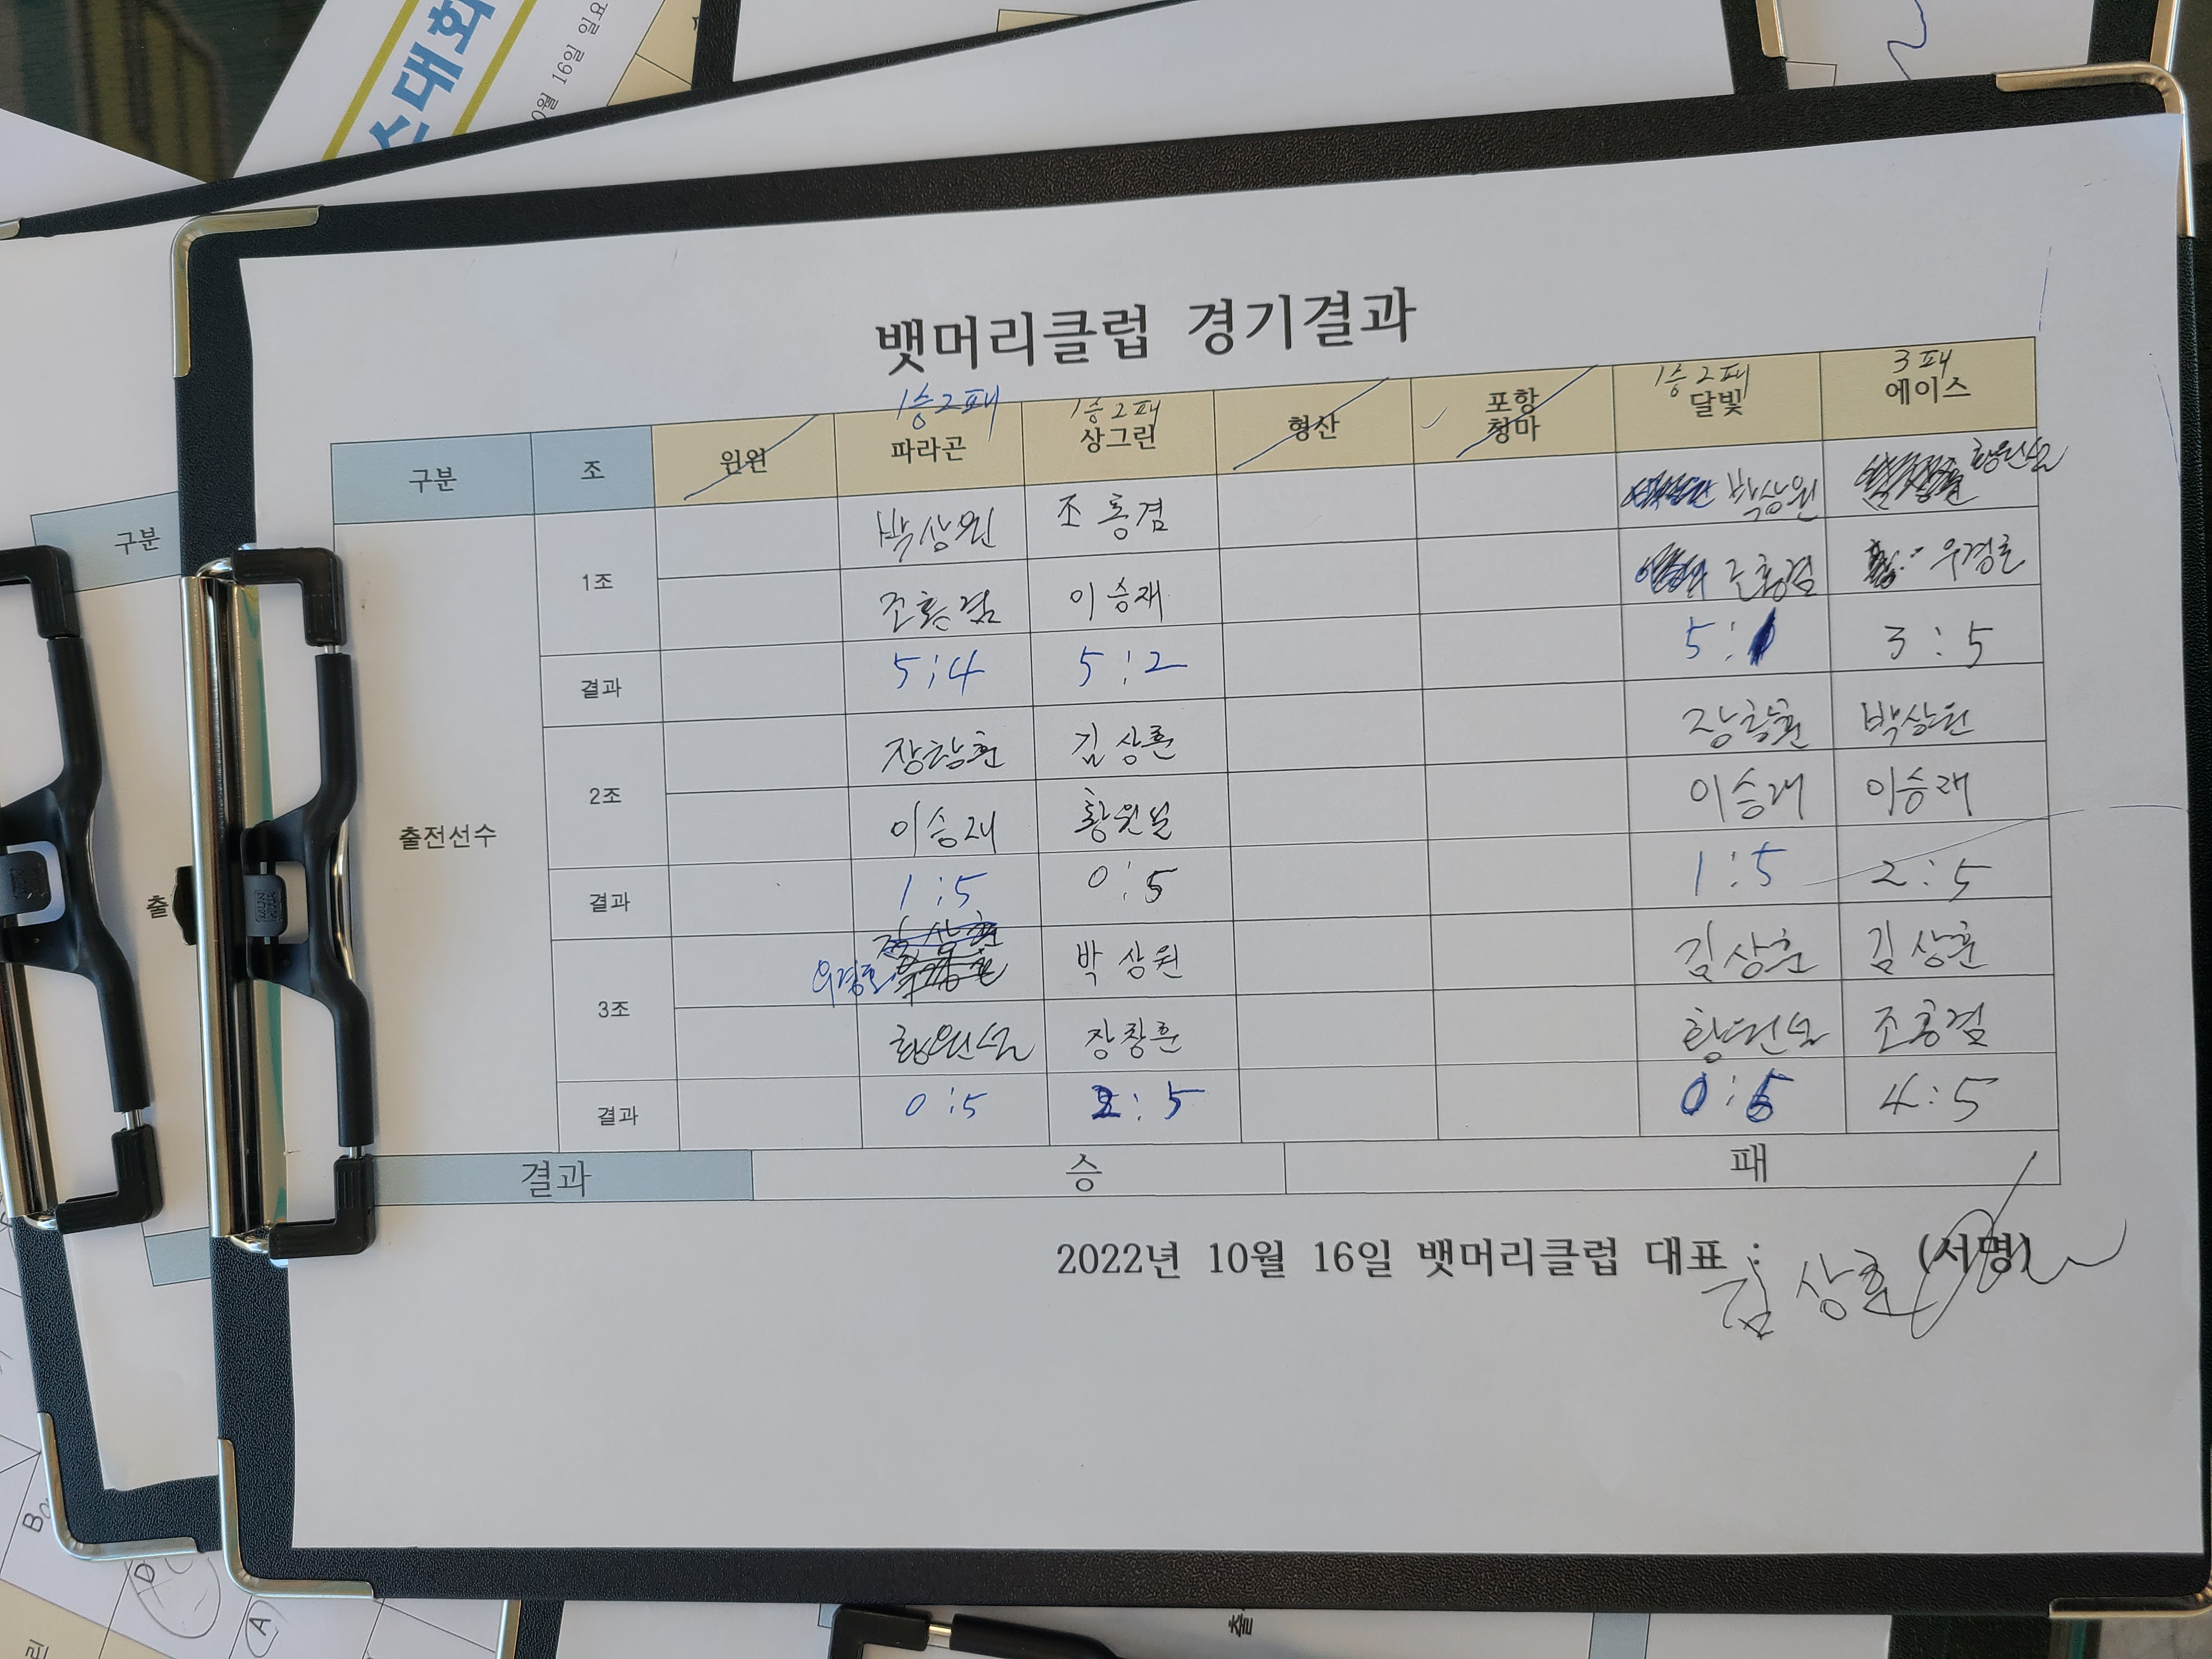 스대회
10월 16일 일요
뱃머리클럽 경기결과
1승2패 1승2패 1승2패 3패
구분 조 윈윈 파라곤 상그린 형산 포항청마 달빛 에이스
구분
1조 박상원 조홍겸 박상원 황원섭
조홍겸 이승재 조홍겸 우경호
결과 5:4 5:2 5: 3:5
2조 장창훈 김상훈 장창훈 박상원
출전선수
이승재 이승재 이승재
결과 1:5 0:5 1:5 2:5
출
3조 우경호 박상원 김상훈 김상훈
장창훈 조홍겸
결과 0:5 2:5 0:5 4:5
결과 승 패
2022년 10월 16일 뱃머리클럽 대표 : 김상훈 (서명)
D
A
리
출